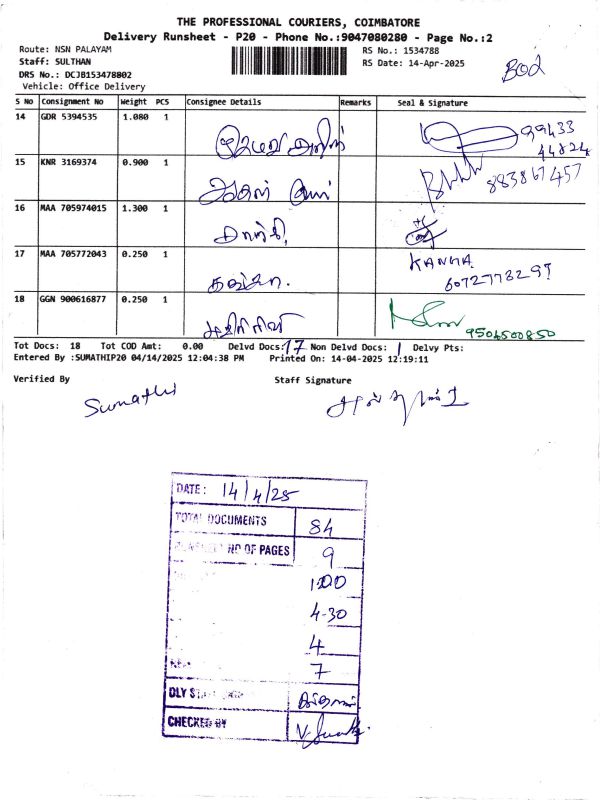 THE PROFESSIONAL COURIERS, COIMBATORE
Delivery Runsheet - P20 - Phone No.:9047080280 - Page No.:2
Route: NSN PALAYAM
RS No.: 1534788
Staff: SULTHAN
RS Date: 14-Apr-2025
DRS No.: DCJB153478802
Vehicle: Office Delivery
S No Consignment No Weight PCS Consignee Details Remarks Seal & Signature
14 GDR 5394535 1.080 1 99433
44824
15 KNR 3169374 0.900 1 883867457
16 MAA 705974015 1.300 1
17 MAA 705772043 0.250 1 கவிதா. KANHA
18 GGN 900616877 0.250 1 9504500850
Tot Docs: 18 Tot COD Amt: 0.00 Delvd Docs: 17 Non Delvd Docs: 1 Delvy Pts:
Entered By :SUMATHIP20 04/14/2025 12:04:38 PM Printed On: 14-04-2025 12:19:11
Verified By Staff Signature
Sumathi
DATE: 14/4/25
TOTAL DOCUMENTS 84
NO OF PAGES 9
1:00
4-30
4
7
DLY
CHECKED BY